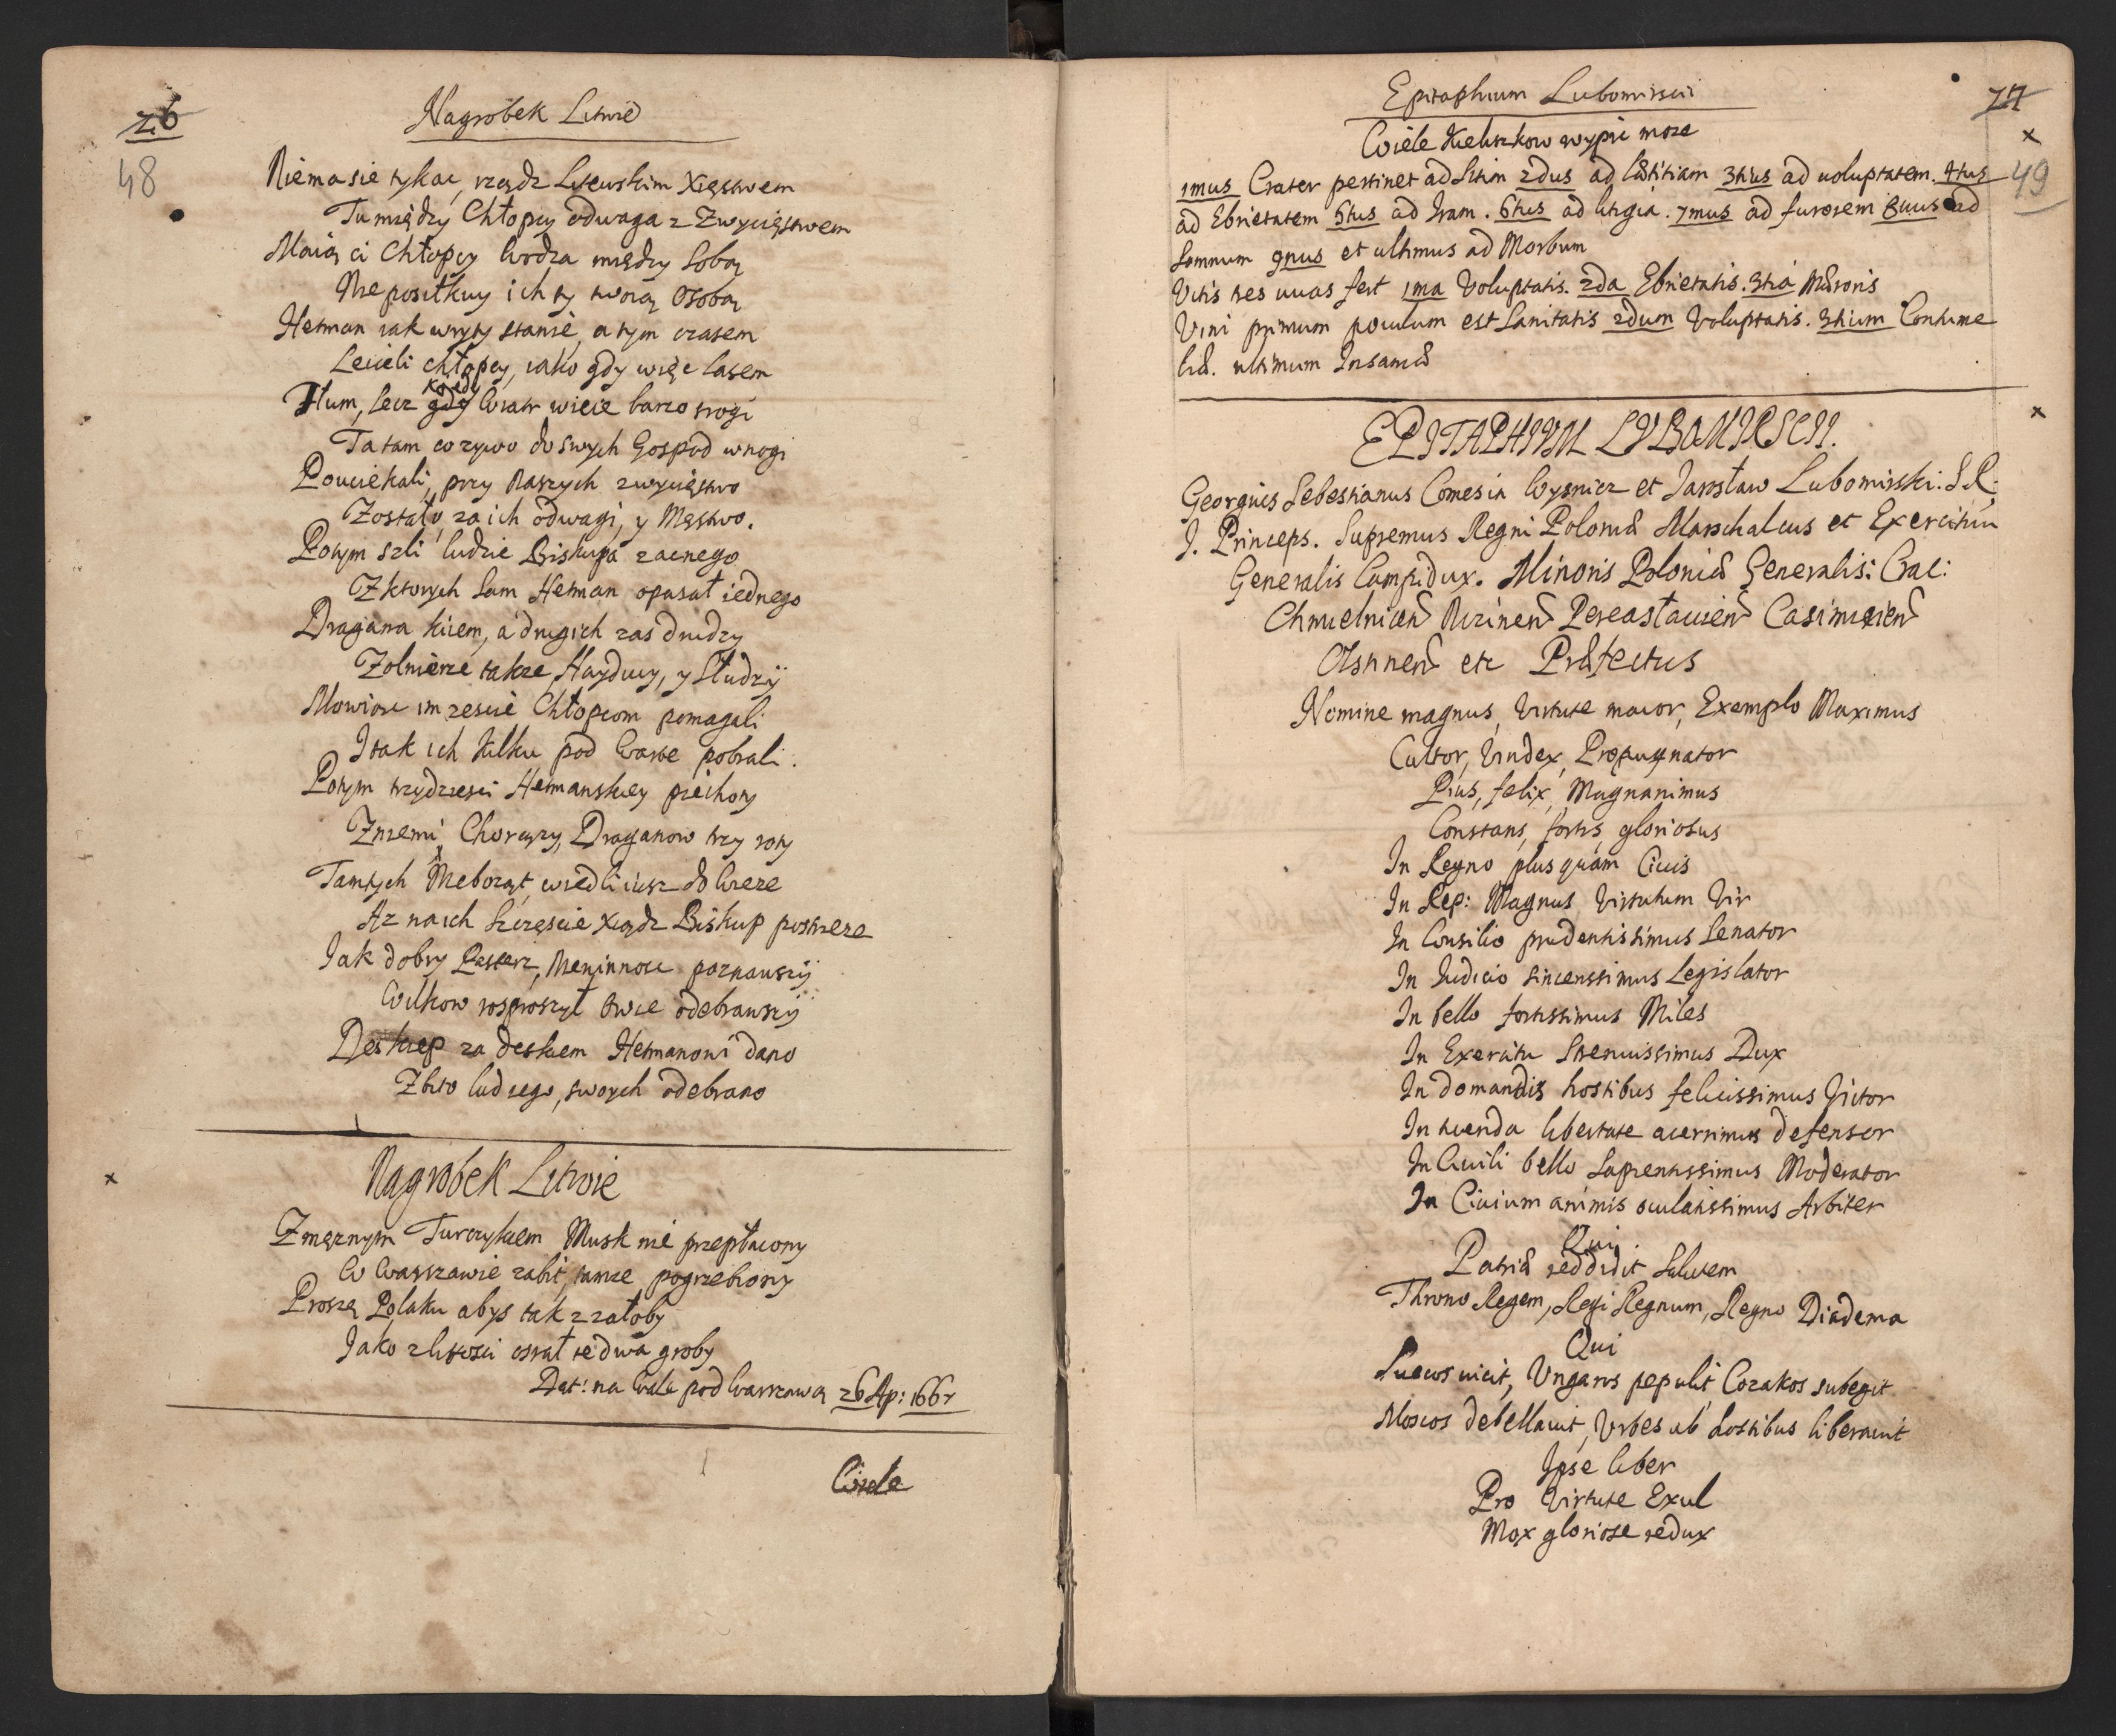 26
48
Nagrobek Litwie
Niema sie tykac, rządz Litewskim Xięstwem
Tu między Chłopcy odwaga z Zwycięstwem
Maią ci Chłopcy Wodza między Sobą
Nie posiłkuy ich ty twoią Osobą
Hetman iak wryty stanie, a tym czasem
Lecieli chłopcy, iako gdy więc lasem
Szum, lecz kiedy Wiatr wieie barzo srogi
Ta tam co zywo do Swych Gospod w nogi
Pouciekali, przy Naszych zwycięstwo
Zostało, za ich odwagi, y Męstwo.
Potym szli ludzie Biskupa zacnego
Z ktorych Sam Hetman opasał iednego
Dragana kiiem, a drugich zas drudzy
Zolnierze takze, Hayducy, y Słudzÿ
Mowiąc im zescie Chłopcom pomagali
I tak ich kilku pod Warte pobrali.
Potym trzydziesci Hetmanskiey piechoty
Z niemi Chorązy, Draganow trzy roty
Tamtych Nieboząt wiedli iusz do Wieze
Az na ich Szczęscie Xiądz Biskup postrzeze
Jak dobry Pasterz, Nieninnosc poznawszÿ
Wilkow rosproszył Owce odebrawszÿ
Despep za despem Hetmanowi dano
Zbito ludzi iego, swoych odebrano
x
Nagrobek Litwie
Z męznym Turczykiem Musk nie przepłacony
W Warszawie zabit, tamze pogrzebiony
Proszę Polaku abys tak z załoby
Jako z litosci osrał te dwa groby
Dat: na Wale pod Warszawą 26 Ap: 1661
Wiele
Epitaphium Lubomirscii
77
x
49
Wiele Kieliszkow wypic moze
1mus Crater pertinet ad Sitim 2dus ad lætitiam 3tius ad uoluptatem. 4tus
ad Ebrietatem 5tus ad Iram. 6tus ad litigia. 7mus ad furorem 8uus ad
Somnum 9nus et ultimus ad Morbum
Vitis tres uuas fert 1ma Voluptatis. 2da Ebrietatis. 3tia Mæroris
Vini primum poculum est Sanitatis 2dum Voluptatis. 3tium Contume
liæ. ultimum Insaniæ
x
EPITAPHIVM LVBOMIRSCII.
Georgius Sebestianus Comes in Wysnicz et Jarosław Lubomirski: S R:
I. Princeps. Supremus Regni Poloniæ Marschalcus et Exercituū
Generalis Campidux. Minoris Poloniæ Generalis: Crac:
Chmielnicen Nizinen Pereasławien Casimirien
Olstinen etc Præfectus
Nomine magnus, Virtute maior, Exemplo Maximus
Cultor, Vindex, Propugnator
Pius, felix, Magnanimus
Constans, fortis, gloriosus
In Regno plus quàm Ciuis
In Rep: Magnus Virtutum Vir
In Consilio prudentissimus Senator
In Iudicio sincerissimus Legislator
In bello fortissimus Miles
In Exercitu Strenuissimus Dux
In domandis hostibus felicissimus Victor
In tuenda libertate acerrimus defensor
In Ciuili bello Sapientissimus Moderator
In Ciuium animis oculatissimus Arbiter
Qui
Patriæ reddidit Salutem
Throno Regem, Regi Regnum, Regno Diadema
Qui
Suecos uicit, Vngaros pepulit, Cozakos subegit
Moscos debellauit, Vrbes ab hostibus liberauit
Ipse liber
Pro Virtute Exul
Mox gloriose redux